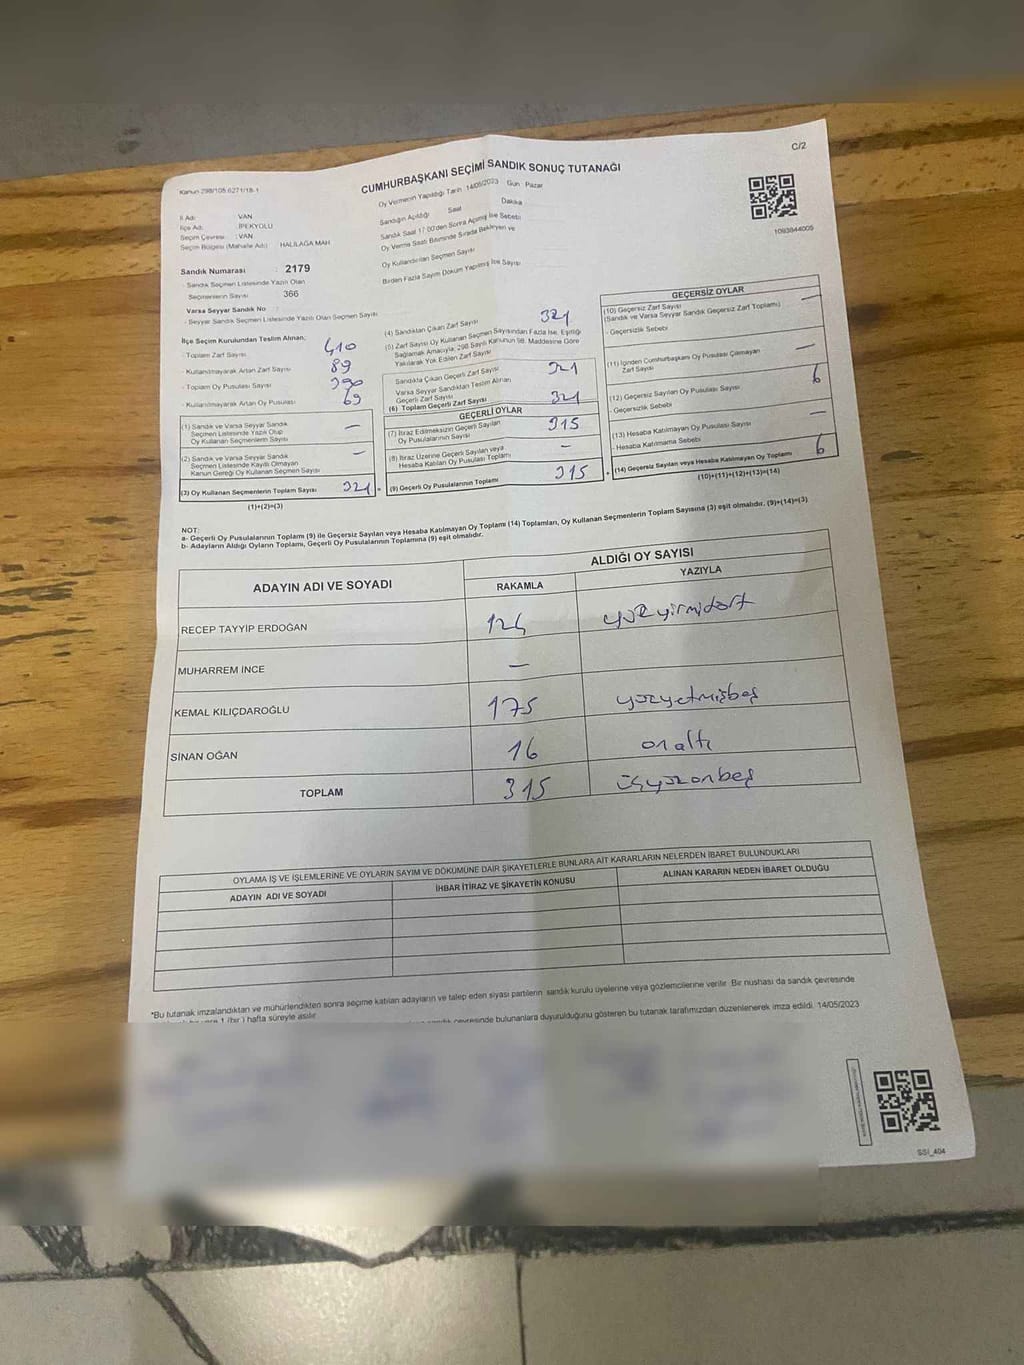 C/2
Kanun 298/105 6271/18-1
CUMHURBAŞKANI SEÇİMİ SANDIK SONUÇ TUTANAĞI
Oy Vermenin Yapıldığı Tarih 14/05/2023 Gün: Pazar
İl Adı : VAN
İlçe Adı : İPEKYOLU
Seçim Çevresi : VAN
Seçim Bölgesi (Mahalle Adı) HALİLAĞA MAH
Sandığın Açıldığı Saat Dakika
Sandık Saat 17.00'den Sonra Açılmış İse Sebebi
Oy Verme Saati Bitiminde Sırada Bekleyen ve
Oy Kullandırılan Seçmen Sayısı
Birden Fazla Sayım Döküm Yapılmış İse Sayısı
1093944005
Sandık Numarası : 2179
- Sandık Seçmen Listesinde Yazılı Olan
Seçmenlerin Sayısı 366
Varsa Seyyar Sandık No :
- Seyyar Sandık Seçmen Listesinde Yazılı Olan Seçmen Sayısı
İlçe Seçim Kurulundan Teslim Alınan;
- Toplam Zarf Sayısı 410
- Kullanılmayarak Artan Zarf Sayısı 89
- Toplam Oy Pusulası Sayısı 390
- Kullanılmayarak Artan Oy Pusulası 69
(1) Sandık ve Varsa Seyyar Sandık
Seçmen Listesinde Yazılı Olup
Oy Kullanan Seçmenlerin Sayısı —
(2) Sandık ve Varsa Seyyar Sandık
Seçmen Listesinde Kayıtlı Olmayan
Kanun Gereği Oy Kullanan Seçmen Sayısı —
(3) Oy Kullanan Seçmenlerin Toplam Sayısı 321 =
(1)+(2)=(3)
(4) Sandıktan Çıkan Zarf Sayısı 321
(5) Zarf Sayısı Oy Kullanan Seçmen Sayısından Fazla İse, Eşitliği
Sağlamak Amacıyla, 298 Sayılı Kanunun 98. Maddesine Göre
Yakılarak Yok Edilen Zarf Sayısı
Sandıkta Çıkan Geçerli Zarf Sayısı 321
Varsa Seyyar Sandıktan Teslim Alınan
Geçerli Zarf Sayısı
(6) Toplam Geçerli Zarf Sayısı 321
GEÇERLİ OYLAR
(7) İtiraz Edilmeksizin Geçerli Sayılan
Oy Pusulalarının Sayısı 315
(8) İtiraz Üzerine Geçerli Sayılan veya
Hesaba Katılan Oy Pusulası Toplamı —
(9) Geçerli Oy Pusulalarının Toplamı 315 +
GEÇERSİZ OYLAR
(10) Geçersiz Zarf Sayısı —
(Sandık ve Varsa Seyyar Sandık Geçersiz Zarf Toplamı)
- Geçersizlik Sebebi
(11) İçinden Cumhurbaşkanı Oy Pusulası Çıkmayan
Zarf Sayısı —
(12) Geçersiz Sayılan Oy Pusulası Sayısı 6
- Geçersizlik Sebebi
(13) Hesaba Katılmayan Oy Pusulası Sayısı —
- Hesaba Katılmama Sebebi
(14) Geçersiz Sayılan veya Hesaba Katılmayan Oy Toplamı 6
(10)+(11)+(12)+(13)=(14)
NOT:
a- Geçerli Oy Pusulalarının Toplamı (9) ile Geçersiz Sayılan veya Hesaba Katılmayan Oy Toplamı (14) Toplamları, Oy Kullanan Seçmenlerin Toplam Sayısına (3) eşit olmalıdır. (9)+(14)=(3)
b- Adayların Aldığı Oyların Toplamı, Geçerli Oy Pusulalarının Toplamına (9) eşit olmalıdır.
ADAYIN ADI VE SOYADI
ALDIĞI OY SAYISI
RAKAMLA YAZIYLA
RECEP TAYYİP ERDOĞAN 124 yüzyirmidört
MUHARREM İNCE —
KEMAL KILIÇDAROĞLU 175 yüzyetmişbeş
SİNAN OĞAN 16 on altı
TOPLAM 315 üçyüzonbeş
OYLAMA İŞ VE İŞLEMLERİNE VE OYLARIN SAYIM VE DÖKÜMÜNE DAİR ŞİKAYETLERLE BUNLARA AİT KARARLARIN NELERDEN İBARET BULUNDUKLARI
ADAYIN ADI VE SOYADI İHBAR İTİRAZ VE ŞİKAYETİN KONUSU ALINAN KARARIN NEDEN İBARET OLDUĞU
*Bu tutanak imzalandıktan ve mühürlendikten sonra seçime katılan adayların ve talep eden siyasi partilerin sandık kurulu üyelerine veya gözlemcilerine verilir. Bir nüshası da sandık çevresinde
1 (bir) hafta süreyle asılır.
sandık çevresinde bulunanlara duyurulduğunu gösteren bu tutanak tarafımızdan düzenlenerek imza edildi. 14/05/2023
SSI_404